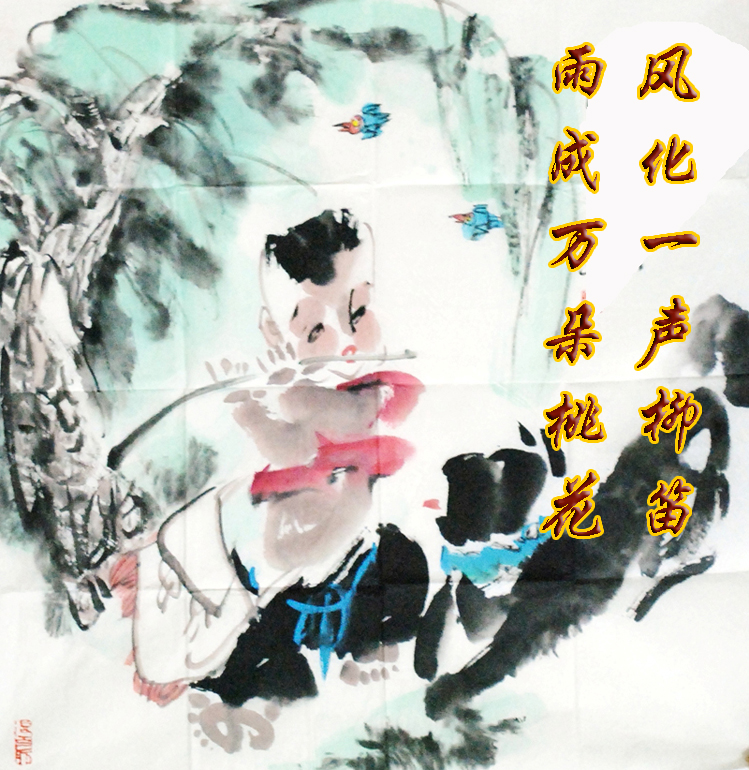 风化一声柳笛
雨成万朵桃花